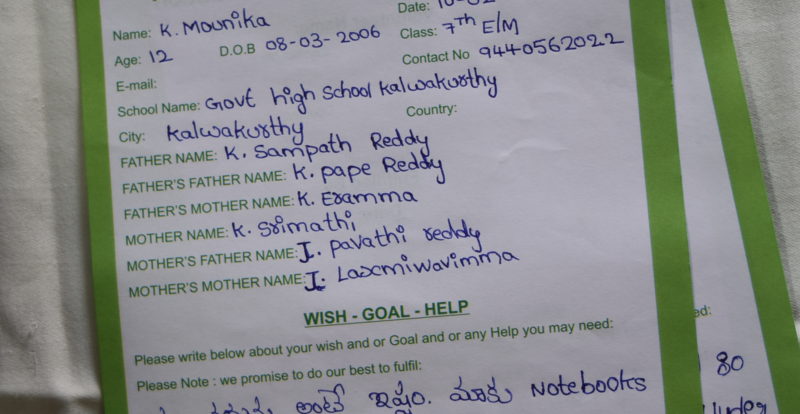 Name: K. Mounika
Date:
Age: 12 D.O.B 08-03-2006 Class: 7th E/M
E-mail: Contact No 9440562022
School Name: Govt high school kalwakurthy
City: kalwakurthy Country:
FATHER NAME: K. Sampath Reddy
FATHER'S FATHER NAME: K. pape Reddy
FATHER'S MOTHER NAME: K. Eramma
MOTHER NAME: K. Srimathi
MOTHER'S FATHER NAME: I. pavathi reddy
MOTHER'S MOTHER NAME: I. Laxmiwavimma
WISH - GOAL - HELP
Please write below about your wish and or Goal and or any Help you may need:
Please Note : we promise to do our best to fulfil:
అంటే ఇష్టం. మాకు Notebooks
ed:
80